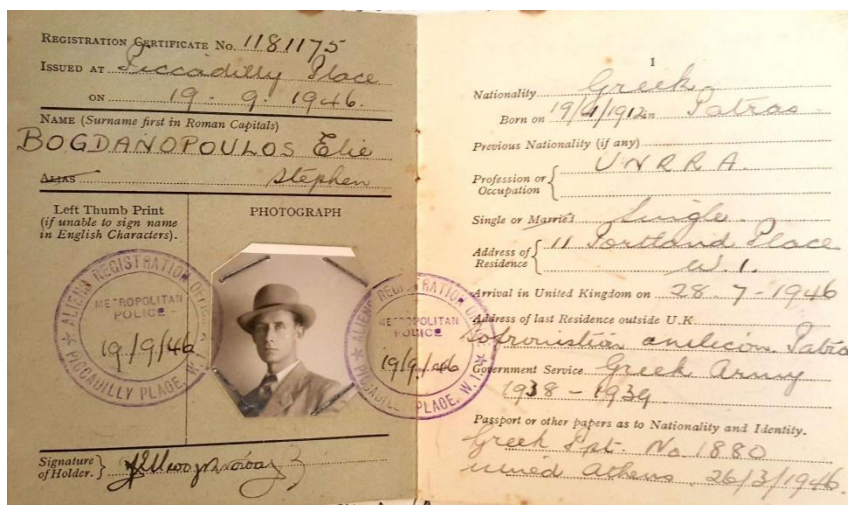 REGISTRATION CERTIFICATE No. 1181175
ISSUED AT Piccadilly Place
ON 19 . 9 . 1946.
NAME (Surname first in Roman Capitals)
BOGDANOPOULOS Elie
ALIAS Stephen
Left Thumb Print
(if unable to sign name
in English Characters).
PHOTOGRAPH
ALIENS REGISTRATION OFFICE
METROPOLITAN
POLICE
19/9/46
PICCADILLY PLACE, W.1.
ALIENS REGISTRATION OFFICE
METROPOLITAN
POLICE
19/9/46
PICCADILLY PLACE, W.1.
Signature
of Holder.
1
Nationality Greek
Born on 19/4/1912 in Patras
Previous Nationality (if any)
Profession or
Occupation
UNRRA.
Single or Married Single
Address of
Residence
11 Portland Place
W.1.
Arrival in United Kingdom on 28 . 7 - 1946
Address of last Residence outside U.K.
Patras
Government Service Greek Army
1938 - 1939
Passport or other papers as to Nationality and Identity.
Greek Ppt. No 1880
Athens 26/3/1946.